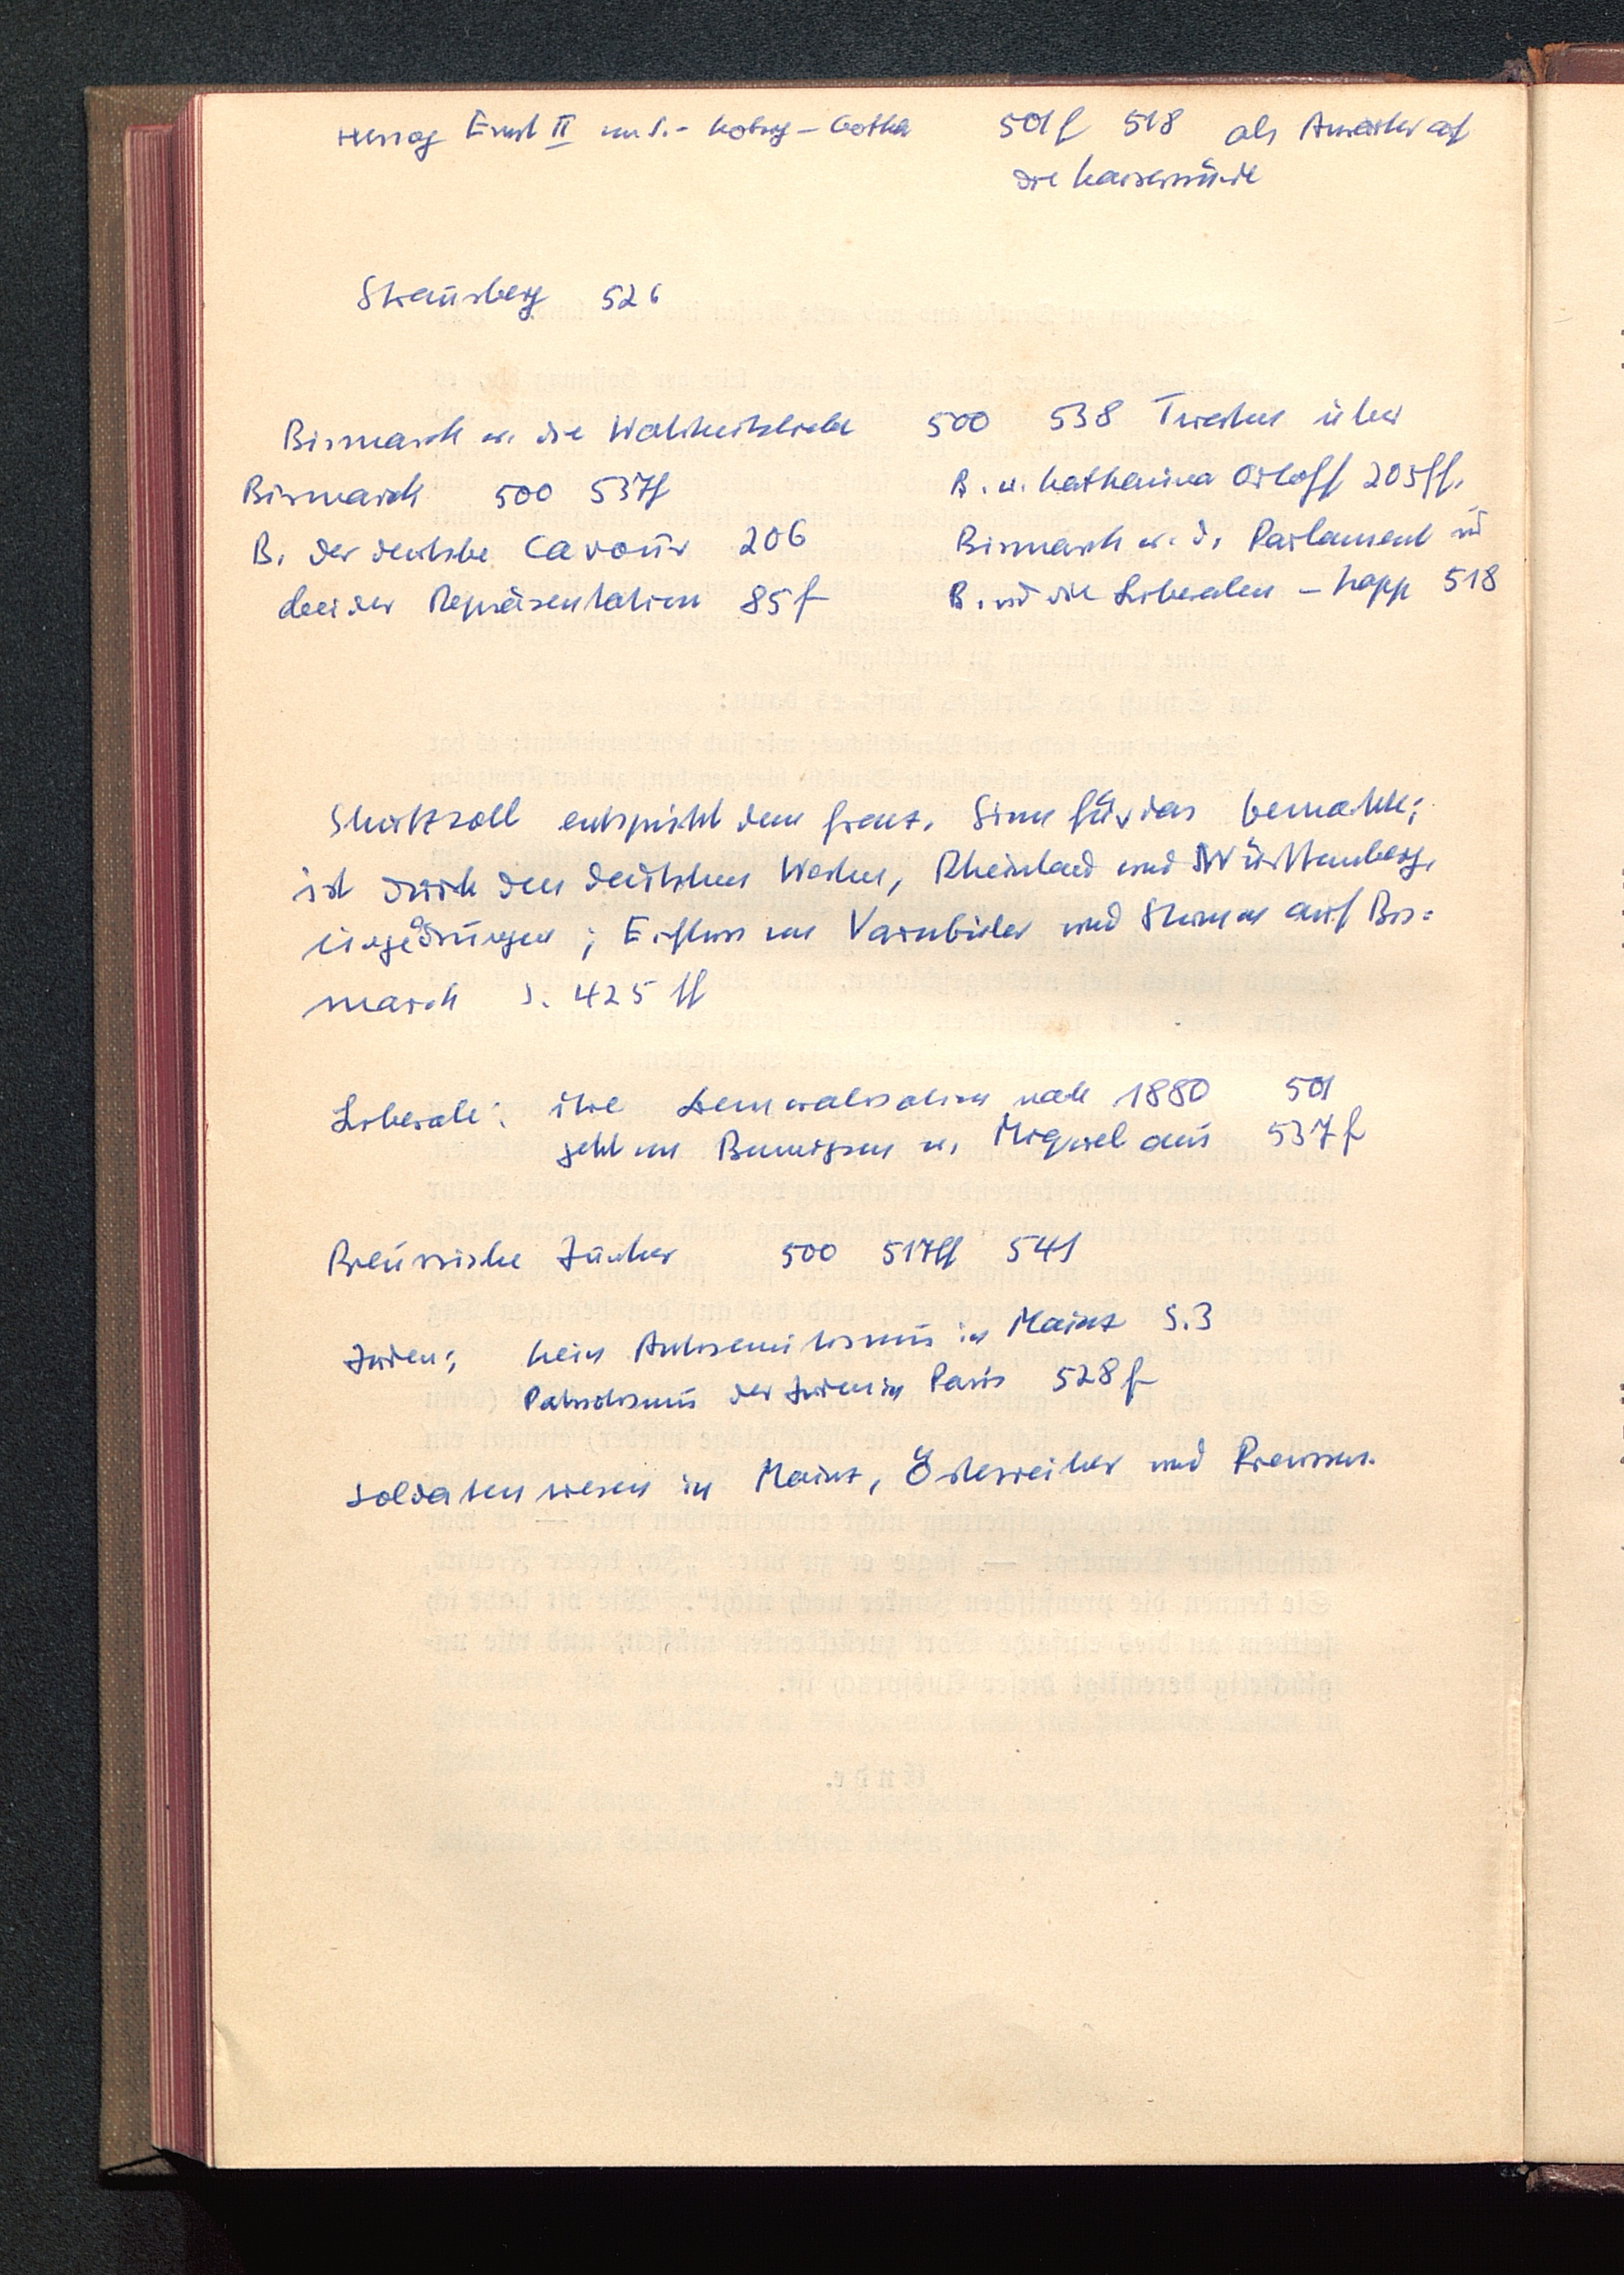 Herzog Ernst II von S.- Koburg-Gotha 501f 518 als Anwärter auf
die Kaiserwürde
Strausberg 526
Bismarck u. die Wahrheitsliebe 500 538 Twesten über
Bismarck 500 537f
B. u. Katharina Orloff 205ff.
B. der deutsche Cavour 206
Bismarck u. d. Parlament
der Repräsentation 85f
B. und die Liberalen - Kapp 518
Schutzzoll entspricht dem franz. Sinn für das
ist durch den deutschen Westen, Rheinland und Württemberg,
eingedrungen; Einfluss von Varnbüler und Stumm auf Bis=
marck S. 425 ff
Liberale: ihre Demoralisation nach 1880 501
geht von Bennigsen u. Miquel aus 537f
Preussische Junker 500 517ff 541
Juden: kein Antisemitismus in Mainz S.3
Patriotismus der Juden in Paris 528f
Soldatenwesen in Mainz, Österreicher und Preussen.
Ende.